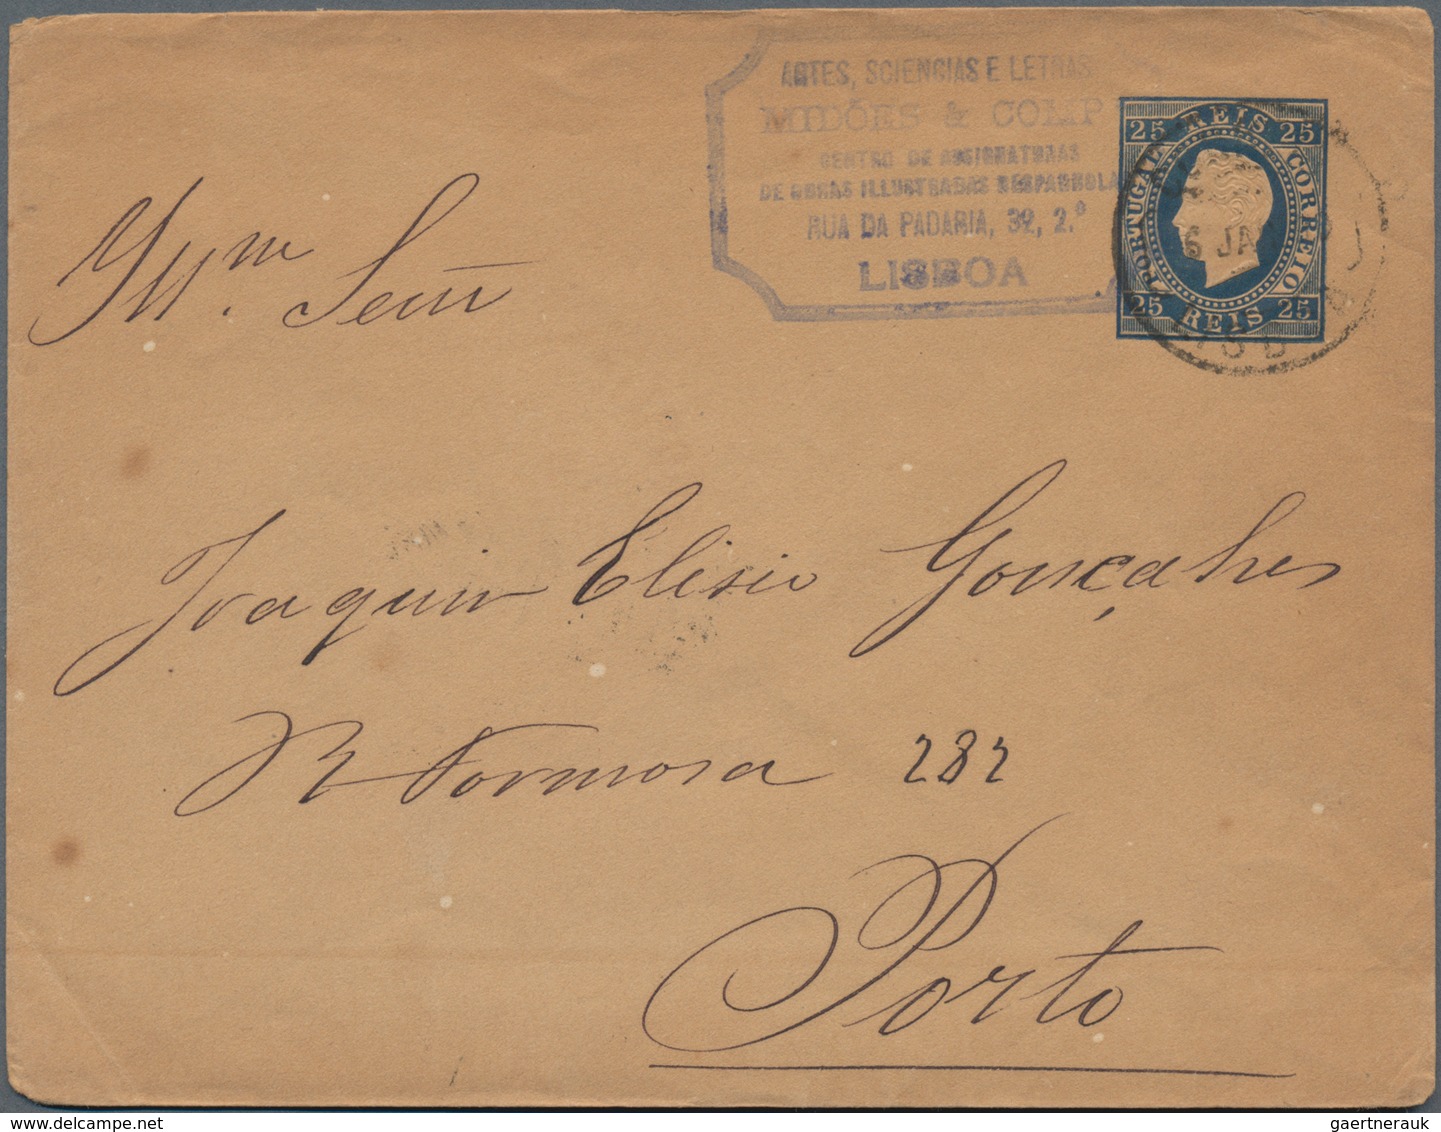 ARTES, SCIENCIAS E LETRAS
MIDÕES & COMP
CENTRO DE ASSIGNATURAS
DE OBRAS ILLUSTRADAS HESPANHOLAS
RUA DA PADARIA, 32, 2.º
LISBOA
25 REIS 25
PORTUGAL CORREIO
25 REIS 25
6 JA
Illm. Senr
Joaquim Elisio Gonçalves
R Formosa 282
Porto
delcampe.net
gaertnerauk